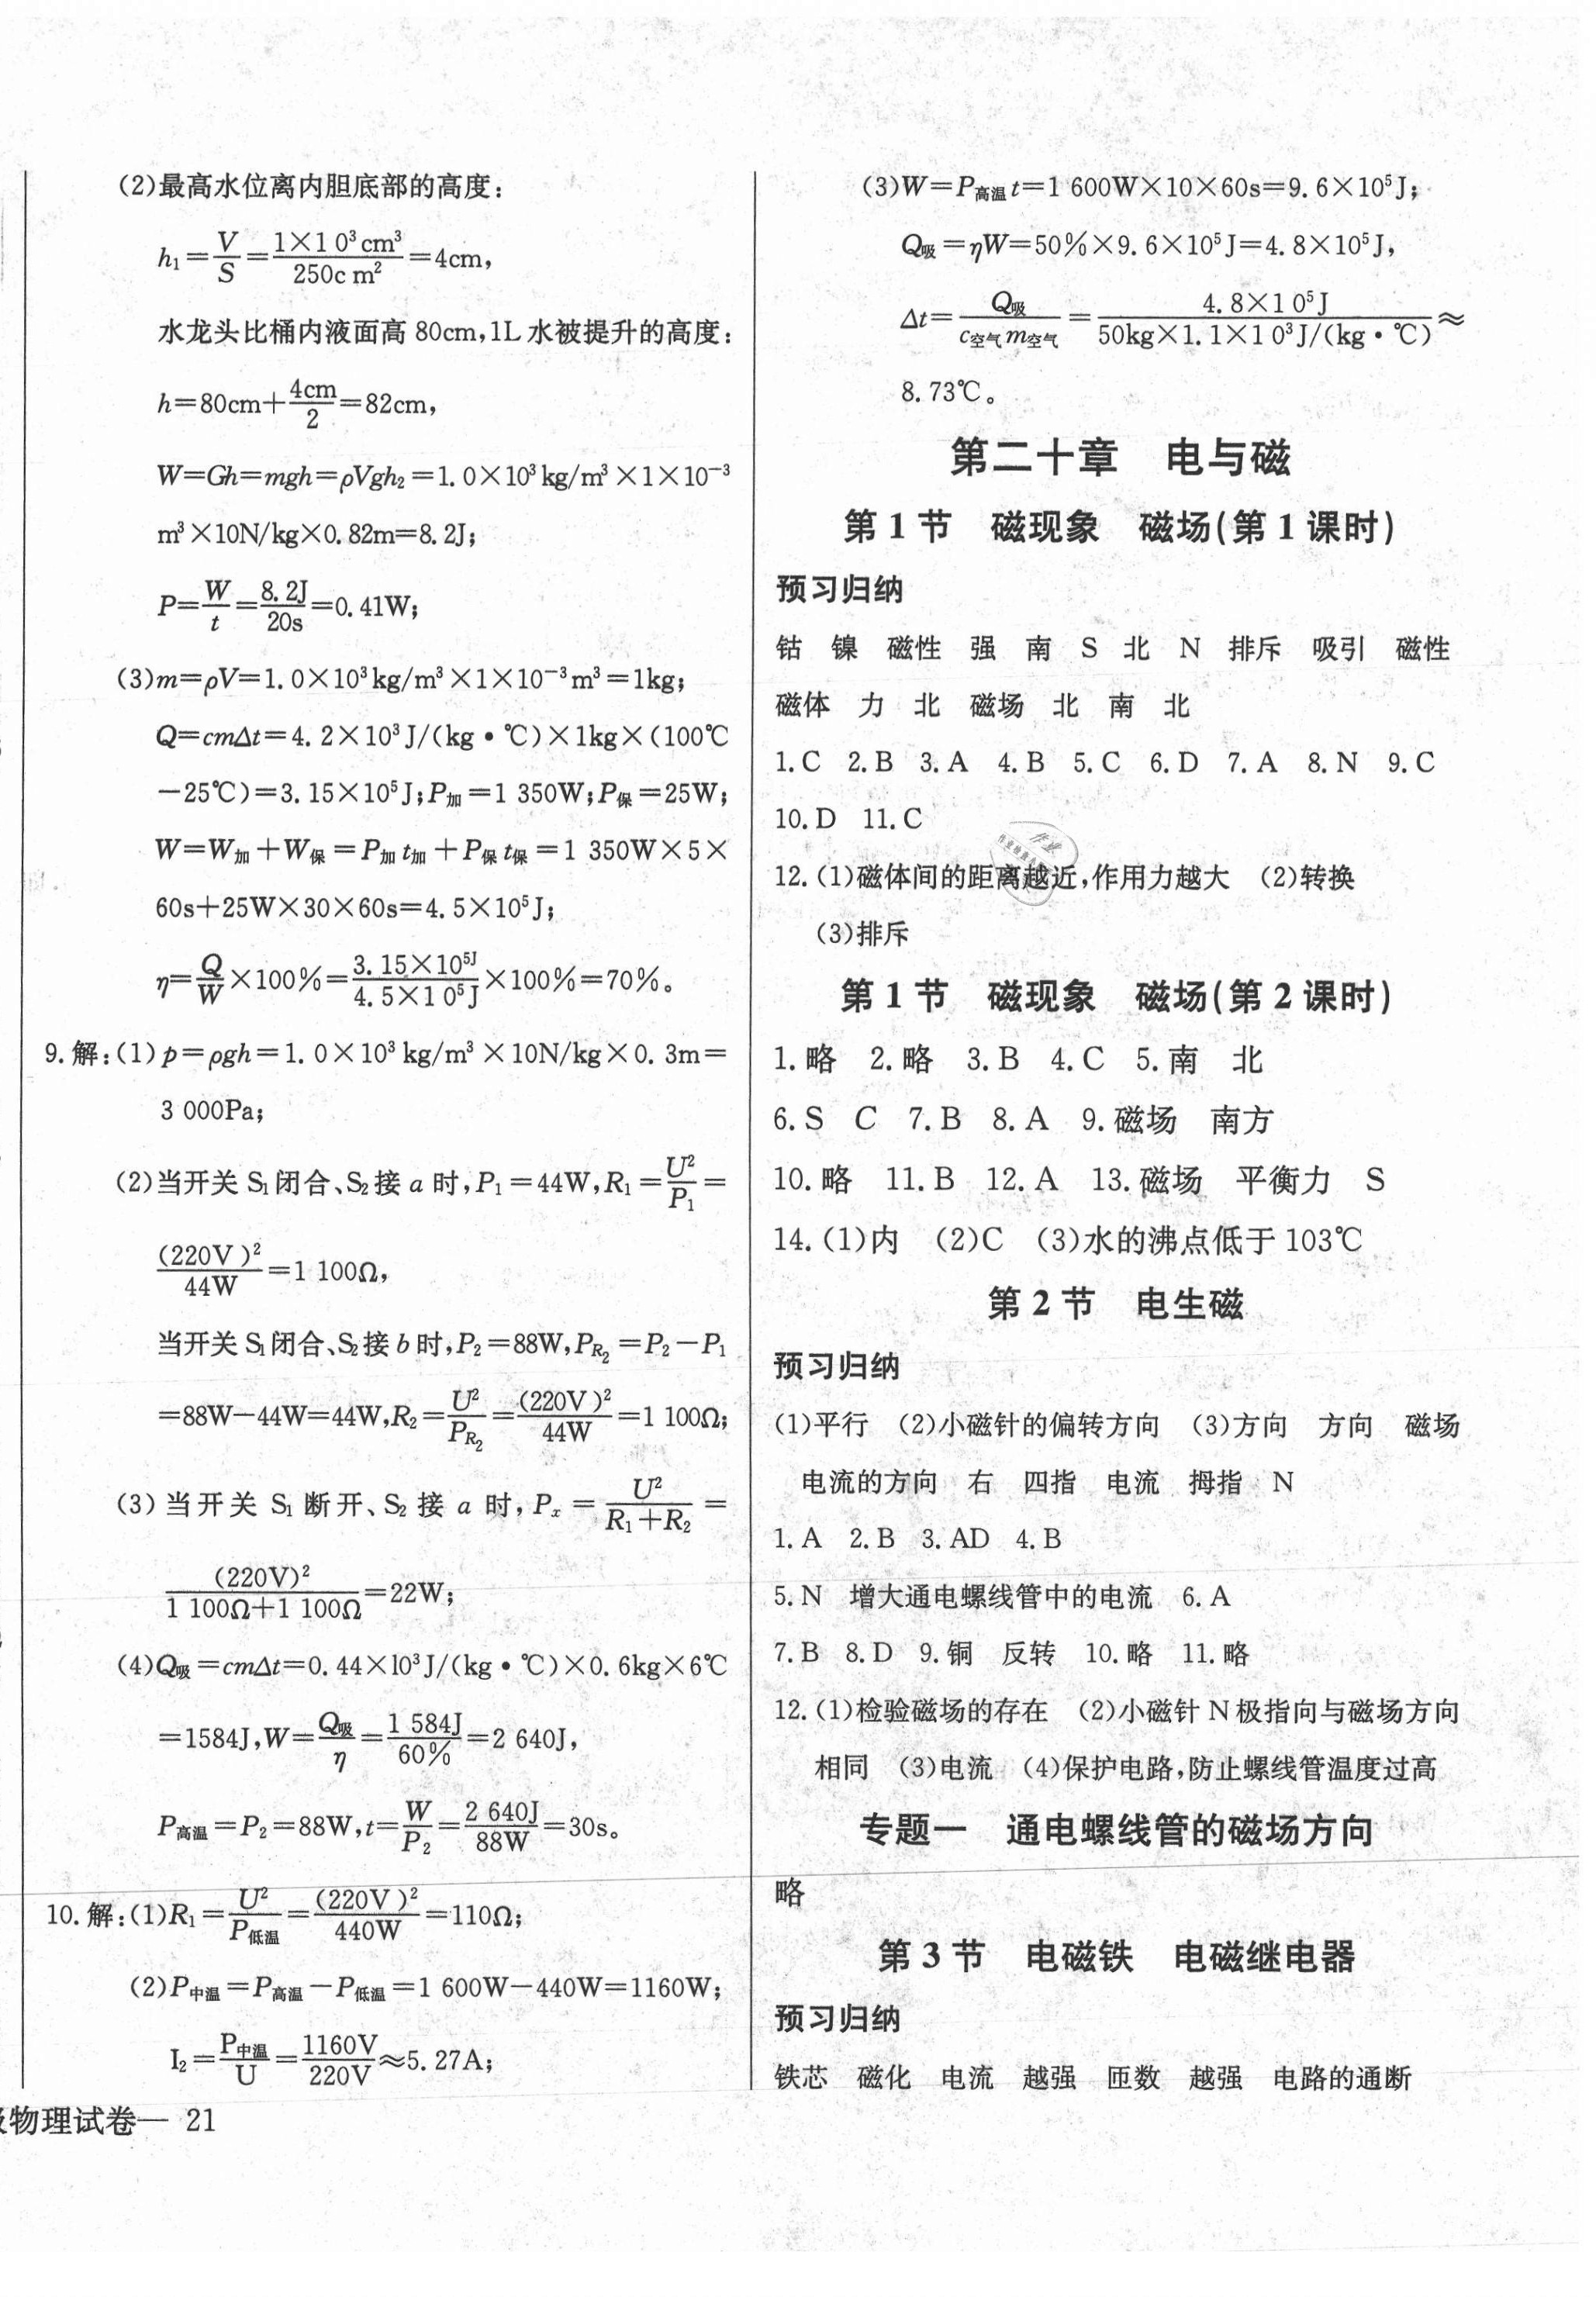 (2)最高水位离内胆底部的高度:
h₁=V/S=1×10³cm³/250cm²=4cm,
水龙头比桶内液面高80cm,1L水被提升的高度:
h=80cm+4cm/2=82cm,
W=Gh=mgh=ρVgh₂=1.0×10³kg/m³×1×10⁻³
m³×10N/kg×0.82m=8.2J;
P=W/t=8.2J/20s=0.41W;
(3)m=ρV=1.0×10³kg/m³×1×10⁻³m³=1kg;
Q=cmΔt=4.2×10³J/(kg·℃)×1kg×(100℃
-25℃)=3.15×10⁵J;P加=1 350W;P保=25W;
W=W加+W保=P加t加+P保t保=1 350W×5×
60s+25W×30×60s=4.5×10⁵J;
η=Q/W×100%=3.15×10⁵J/4.5×10⁵J×100%=70%。
9.解:(1)p=ρgh=1.0×10³kg/m³×10N/kg×0.3m=
3 000Pa;
(2)当开关S₁闭合、S₂接a时,P₁=44W,R₁=U²/P₁=
(220V)²/44W=1 100Ω,
当开关S₁闭合、S₂接b时,P₂=88W,P_R₂=P₂-P₁
=88W-44W=44W,R₂=U²/P_R₂=(220V)²/44W=1 100Ω;
(3)当开关S₁断开、S₂接a时,Pₓ=U²/(R₁+R₂)=
(220V)²/(1 100Ω+1 100Ω)=22W;
(4)Q吸=cmΔt=0.44×10³J/(kg·℃)×0.6kg×6℃
=1584J,W=Q吸/η=1 584J/60%=2 640J,
P高温=P₂=88W,t=W/P₂=2 640J/88W=30s。
10.解:(1)R₁=U²/P低温=(220V)²/440W=110Ω;
(2)P中温=P高温-P低温=1 600W-440W=1160W;
I₂=P中温/U=1160V/220V≈5.27A;
级物理试卷— 21
(3)W=P高温t=1 600W×10×60s=9.6×10⁵J;
Q吸=ηW=50%×9.6×10⁵J=4.8×10⁵J,
Δt=Q吸/c空气m空气=4.8×10⁵J/50kg×1.1×10³J/(kg·℃)≈
8.73℃。
第二十章 电与磁
第1节 磁现象 磁场(第1课时)
预习归纳
钴 镍 磁性 强 南 S 北 N 排斥 吸引 磁性
磁体 力 北 磁场 北 南 北
1.C 2.B 3.A 4.B 5.C 6.D 7.A 8.N 9.C
10.D 11.C
12.(1)磁体间的距离越近,作用力越大 (2)转换
(3)排斥
第1节 磁现象 磁场(第2课时)
1.略 2.略 3.B 4.C 5.南 北
6.S C 7.B 8.A 9.磁场 南方
10.略 11.B 12.A 13.磁场 平衡力 S
14.(1)内 (2)C (3)水的沸点低于103℃
第2节 电生磁
预习归纳
(1)平行 (2)小磁针的偏转方向 (3)方向 方向 磁场
电流的方向 右 四指 电流 拇指 N
1.A 2.B 3.AD 4.B
5.N 增大通电螺线管中的电流 6.A
7.B 8.D 9.铜 反转 10.略 11.略
12.(1)检验磁场的存在 (2)小磁针N极指向与磁场方向
相同 (3)电流 (4)保护电路,防止螺线管温度过高
专题一 通电螺线管的磁场方向
略
第3节 电磁铁 电磁继电器
预习归纳
铁芯 磁化 电流 越强 匝数 越强 电路的通断